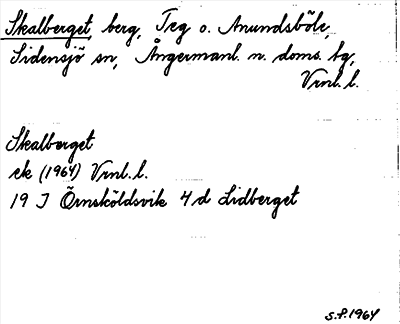 Skalberget, berg, Teg o. Anundsböle,
Sidensjö sn, Ångermanl. n. doms. tg,
Vrnl. l.
Skalberget
ek (1964) Vrnl. l.
19 J Örnsköldsvik 4 d Lidberget
S.P. 1964